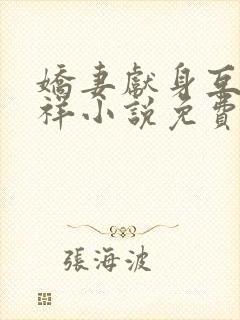 嬌妻獻身互
祥小說免費
張海波